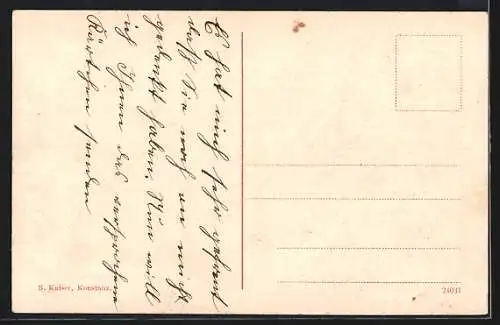 Es hat mich sehr gefreut
daß Sie noch an mich
gedacht haben. Nun will
ich Ihnen das versprochene
Kärtchen senden
B. Kaiser, Konstanz.
24041